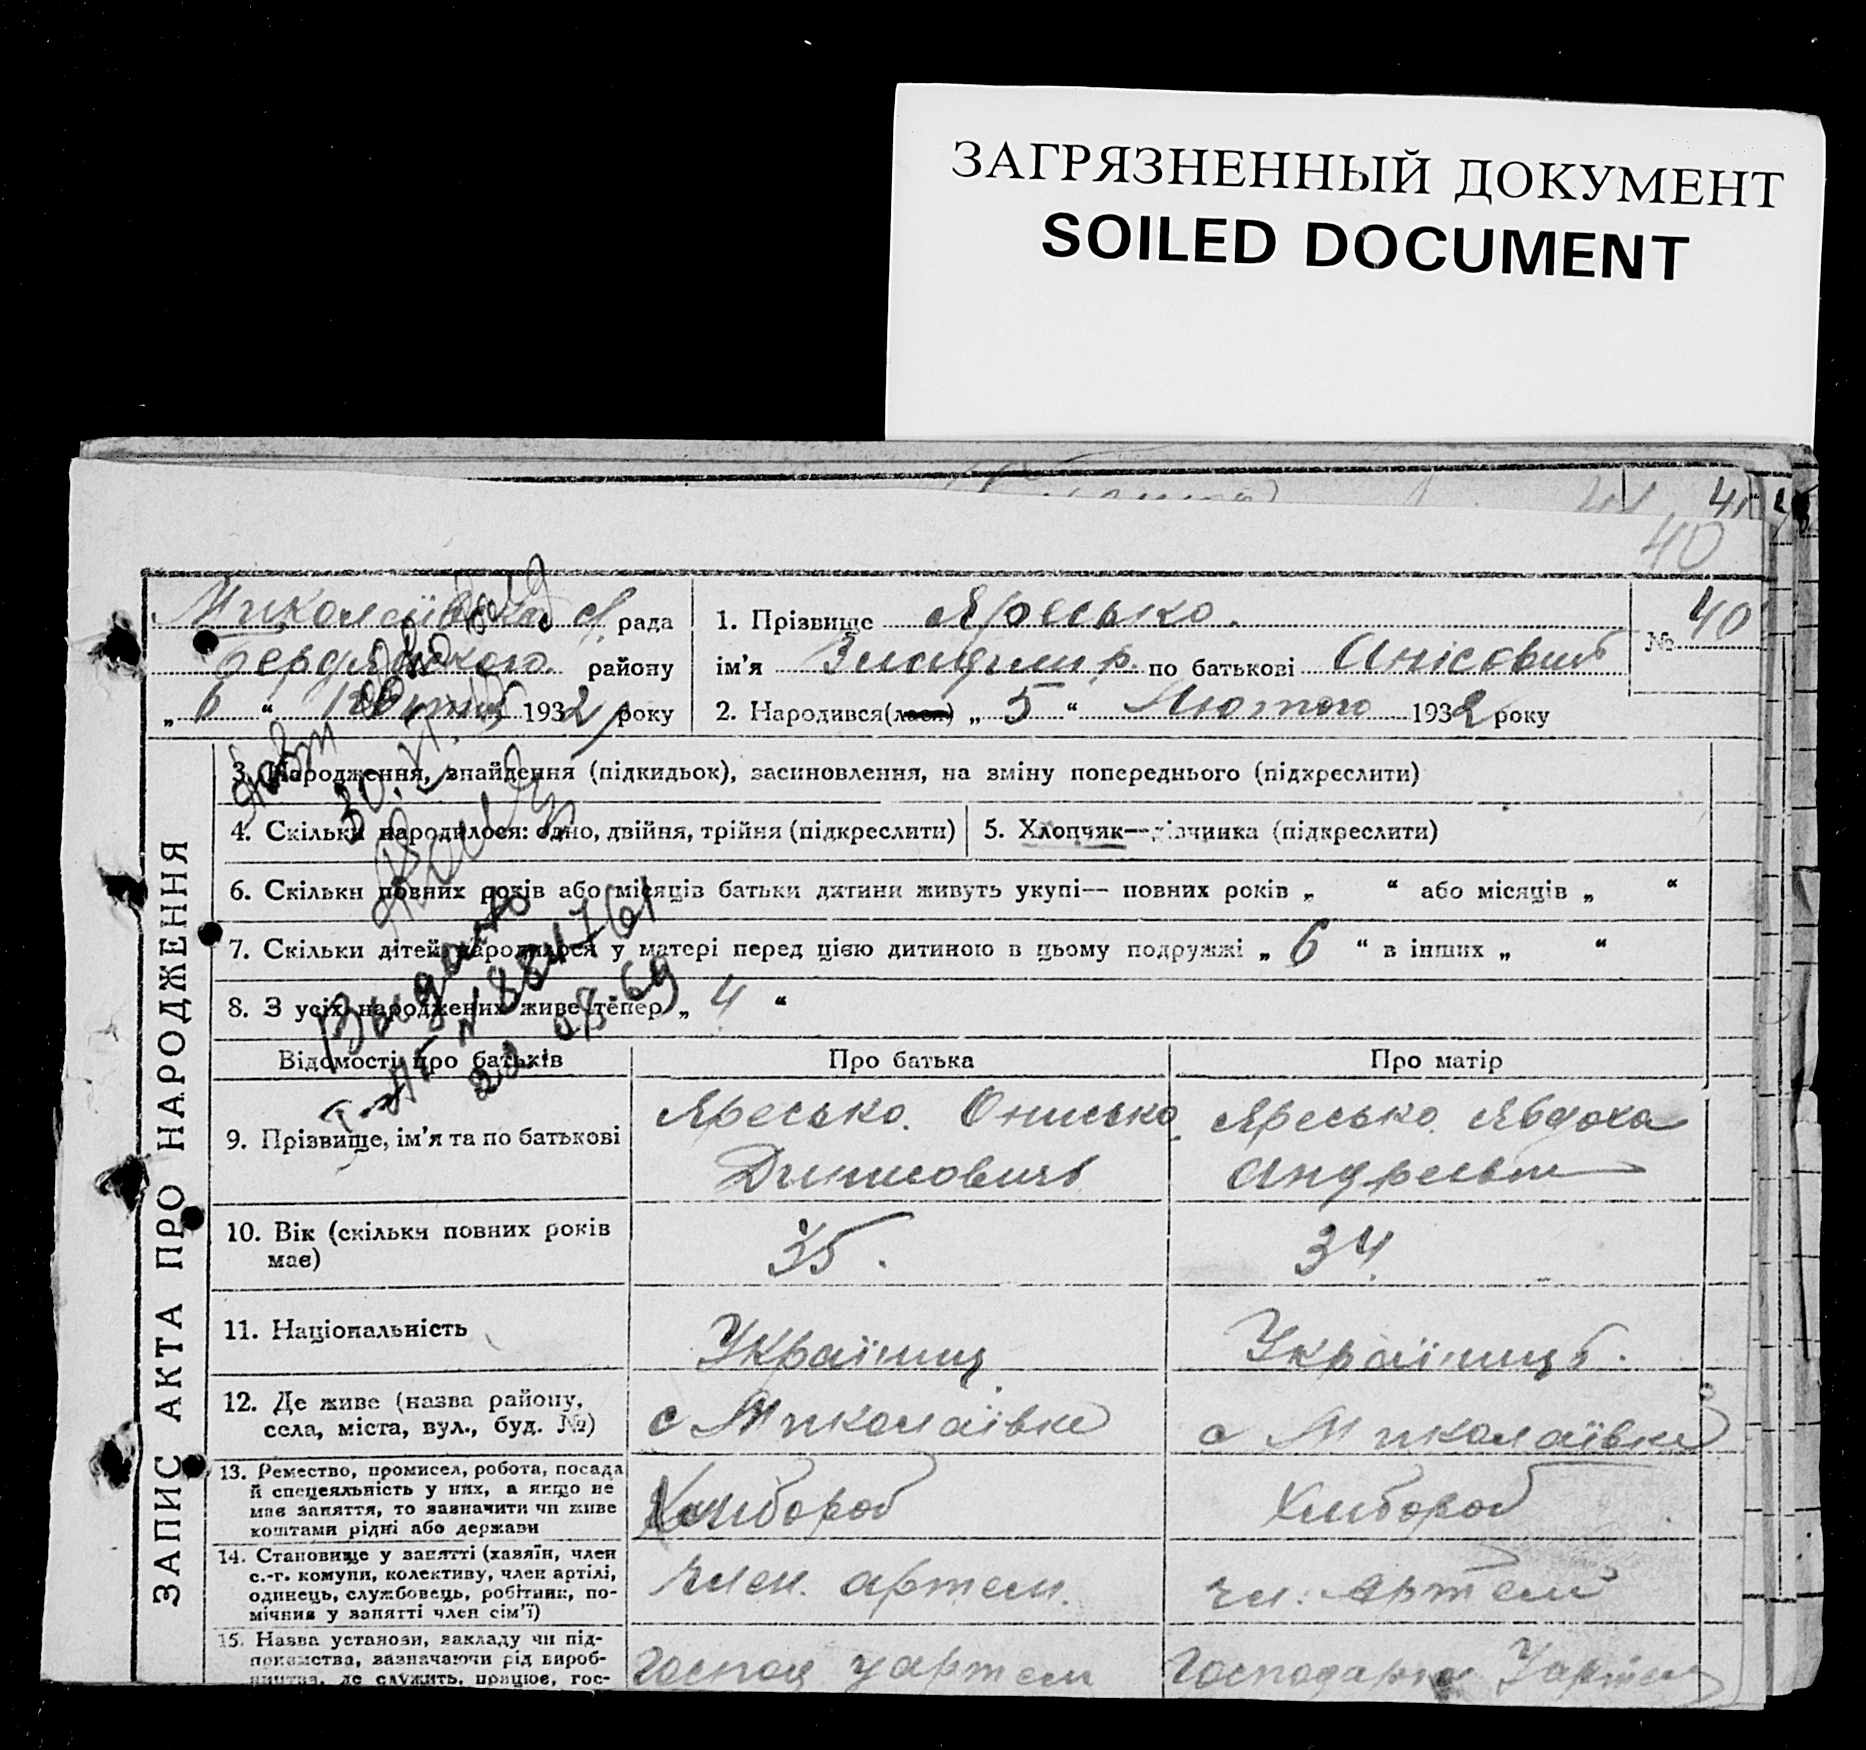 ЗАГРЯЗНЕННЫЙ ДОКУМЕНТ
SOILED DOCUMENT
41
40
Миколаївка с. рада
Бердянського району
„ 6 “ 1932 року
1. Прізвище Яресько.
ім’я Владимир. по батькові Анісовит
2. Народився(лася) „ 5 “ Лютого 1932 року
№ 40
ЗАПИС АКТА ПРО НАРОДЖЕННЯ
3. Народження, знайдення (підкидьок), засиновлення, на зміну попереднього (підкреслити)
4. Скільки народилося: одно, двійня, трійня (підкреслити)
5. Хлопчик—дівчинка (підкреслити)
6. Скільки повних років або місяців батьки дитини живуть укупі— повних років „ “ або місяців „ “
7. Скільки дітей народилося у матері перед цією дитиною в цьому подружжі „ 6 “ в інших „ “
8. З усіх народжених живе тепер „ 4 “
Видано
Відомості про батьків
Про батька
Про матір
9. Прізвище, ім’я та по батькові
Яресько. Онисько
Динисовичь
Яресько Явдоха
10. Вік (скільки повних років
має)
35.
34
11. Національність
Україниц
Україниць.
12. Де живе (назва району,
села, міста, вул., буд. №)
с Миколаївка
с Миколаївка
13. Ремество, промисел, робота, посада
й спецеяльність у них, а якщо не
має заняття, то зазначити чи живе
коштами рідні або держави
Хлибороб
Хлибороб
14. Становище у занятті (хазяїн, член
с.-г. комуни, колективу, член артілі,
одинець, службовець, робітник, по-
мічник у занятті член сім’ї)
член. артели.
чл. Артели
15. Назва установи, закладу чи під-
приємства, зазначаючи рід вироб-
ництва, де служить, працює, гос-
Господ уартели